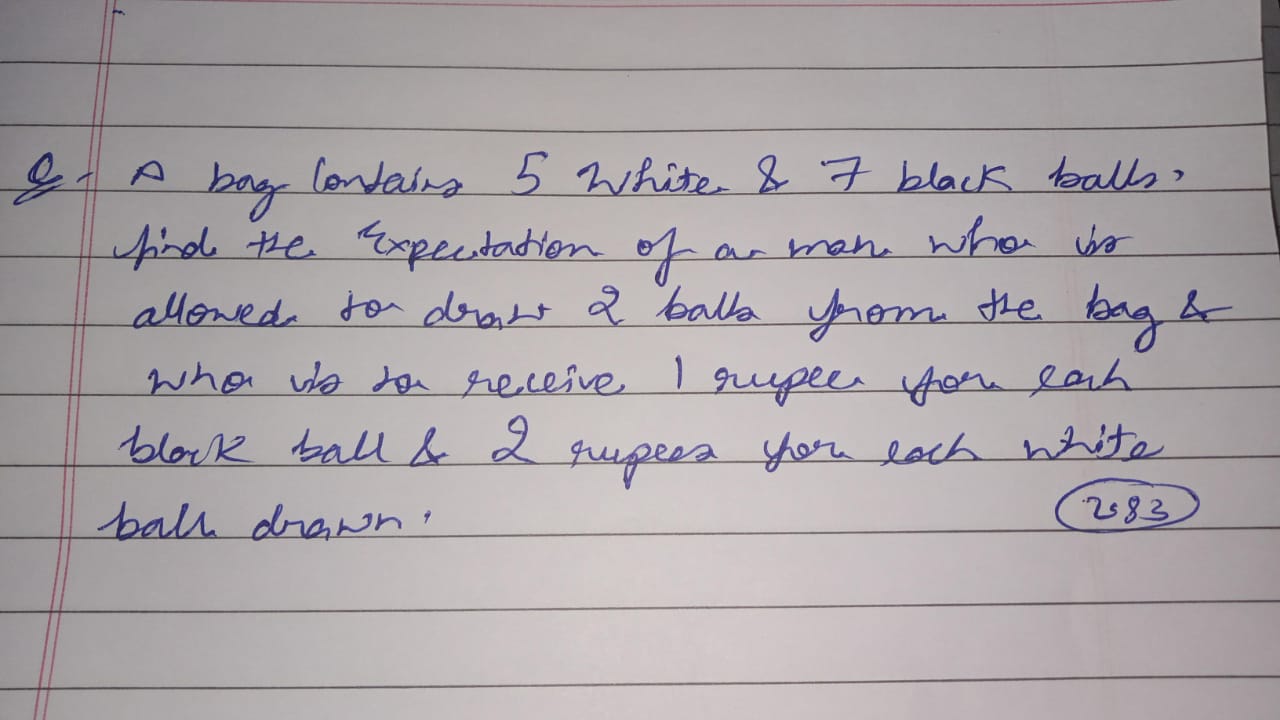 Q- A bag Contains 5 White & 7 black balls.
find the Expectation of a man who is
allowed to draw 2 balls from the bag &
who is to receive 1 rupee for each
black ball & 2 rupees for each white
ball drawn.
2.83